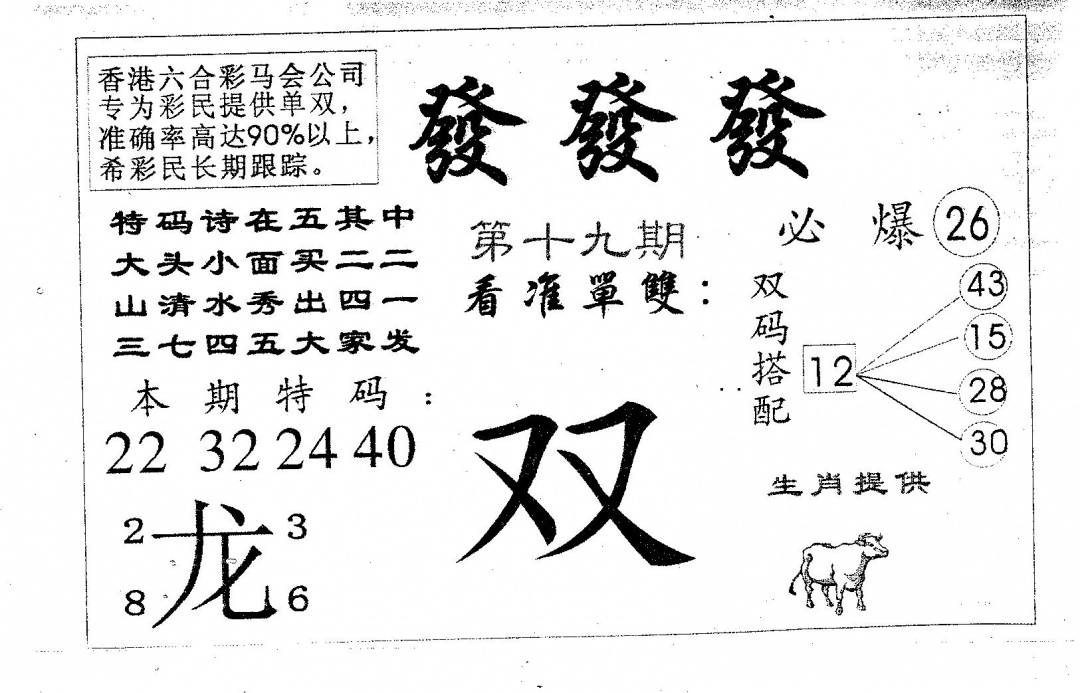 香港六合彩马会公司
专为彩民提供单双，
准确率高达90%以上，
希彩民长期跟踪。
發 發 發
特码诗在五其中
大头小面买二二
山清水秀出四一
三七四五大家发
第十九期
看准單雙：
必爆 26
双码搭配
12
43
15
28
30
本期特码：
22 32 24 40
双
生肖提供
2 龙 3
8 6